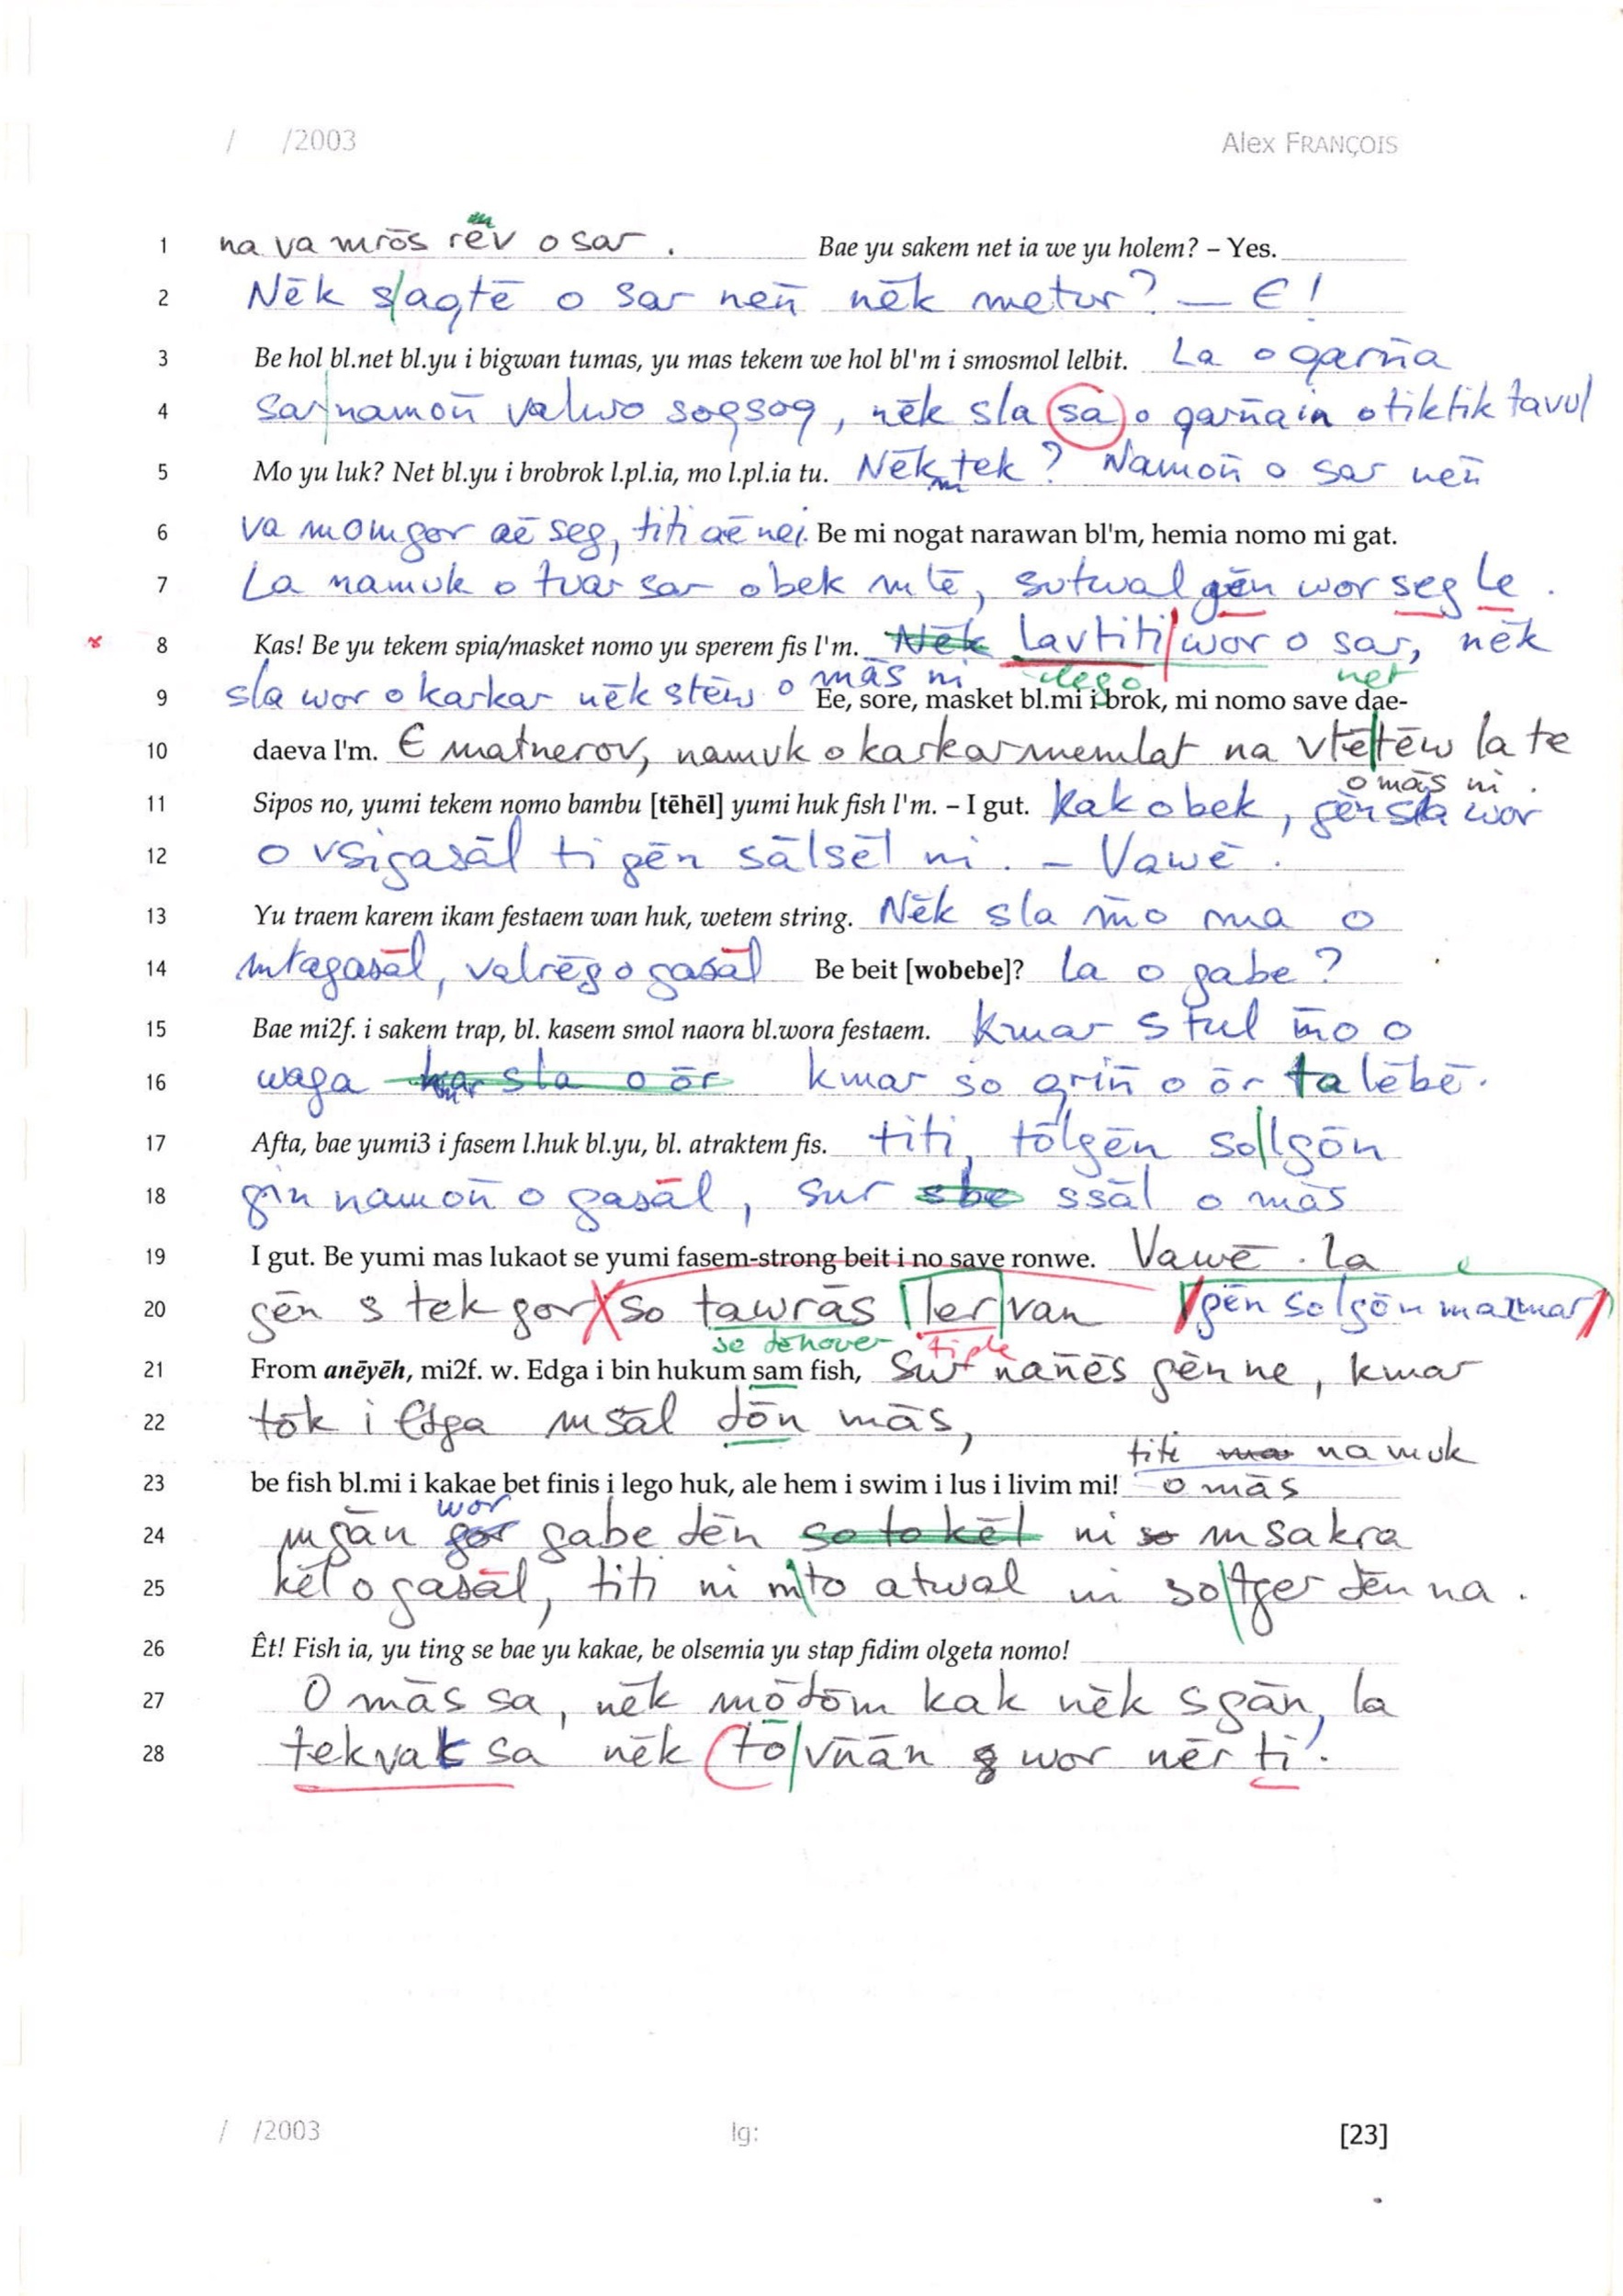 / /2003 Alex FRANÇOIS
1 na va m̄rōs rēv o sar . Bae yu sakem net ia we yu holem? – Yes.
2 Nēk s/agtē o sar nen̄ nēk metur? — Є!
3 Be hol bl.net bl.yu i bigwan tumas, yu mas tekem we hol bl'm i smosmol lelbit. La o qarn̄a
4 sar/namon̄ valwo soqsoq, nēk sla sa o qarn̄a in o tiktik tavul
5 Mo yu luk? Net bl.yu i brobrok l.pl.ia, mo l.pl.ia tu. Nēk m tek? Namon̄ o sar nen̄
6 va momgor aē seg, titi aē nei. Be mi nogat narawan bl'm, hemia nomo mi gat.
7 La namuk o tvar sar obek m tē, sutwal gēn wor seg le .
8 Kas! Be yu tekem spia/masket nomo yu sperem fis l'm. Nēk lavtiti/wor o sar, nēk
9 sla wor o karkar nēk stēw o mās ni lego net Ee, sore, masket bl.mi i brok, mi nomo save dae-
10 daeva l'm. Є matnerov, namuk o karkar memlat na vtē/tēw la te
o mās ni .
11 Sipos no, yumi tekem nomo bambu [tēhēl] yumi huk fish l'm. – I gut. kak obek, gēn sla wor
12 o vsigasāl ti gēn sālsēl ni . – Vawē .
13 Yu traem karem ikam festaem wan huk, wetem string. Nēk sla m̄o ma o
14 mtagasāl, valrēg o gasāl Be beit [wobebe]? la o gabe?
15 Bae mi2f. i sakem trap, bl. kasem smol naora bl.wora festaem. kmar s tul m̄o o
16 waga sla o ōr kmar so qrin̄ o ōr ta lēbē.
17 Afta, bae yumi3 i fasem l.huk bl.yu, bl. atraktem fis. titi, tōlgēn so/lgōn
18 gin namon̄ o gasāl, sur sbe ssāl o mās
19 I gut. Be yumi mas lukaot se yumi fasem-strong beit i no save ronwe. Vawē . la
20 gēn s tek gor so tawrās ler van gēn so lgōn mat mar
se dēhover tiple
21 From anēyēh, mi2f. w. Edga i bin hukum sam fish, Sur nan̄ēs gēn ne, kmar
22 tōk i Edga m sāl dōn mās,
titi namuk
23 be fish bl.mi i kakae bet finis i lego huk, ale hem i swim i lus i livim mi! o mās
wor
24 m gān gor gabe dēn so to kēl ni so m sakra
25 kēl o gasāl, titi ni m/to atwal ni so/tger dēn na .
26 Êt! Fish ia, yu ting se bae yu kakae, be olsemia yu stap fidim olgeta nomo!
27 O mās sa, nēk mōdōm kak nēk sgān, la
28 tekvak sa nēk (tō/vn̄ān wor nēr ti!
/ /2003 lg: [23]